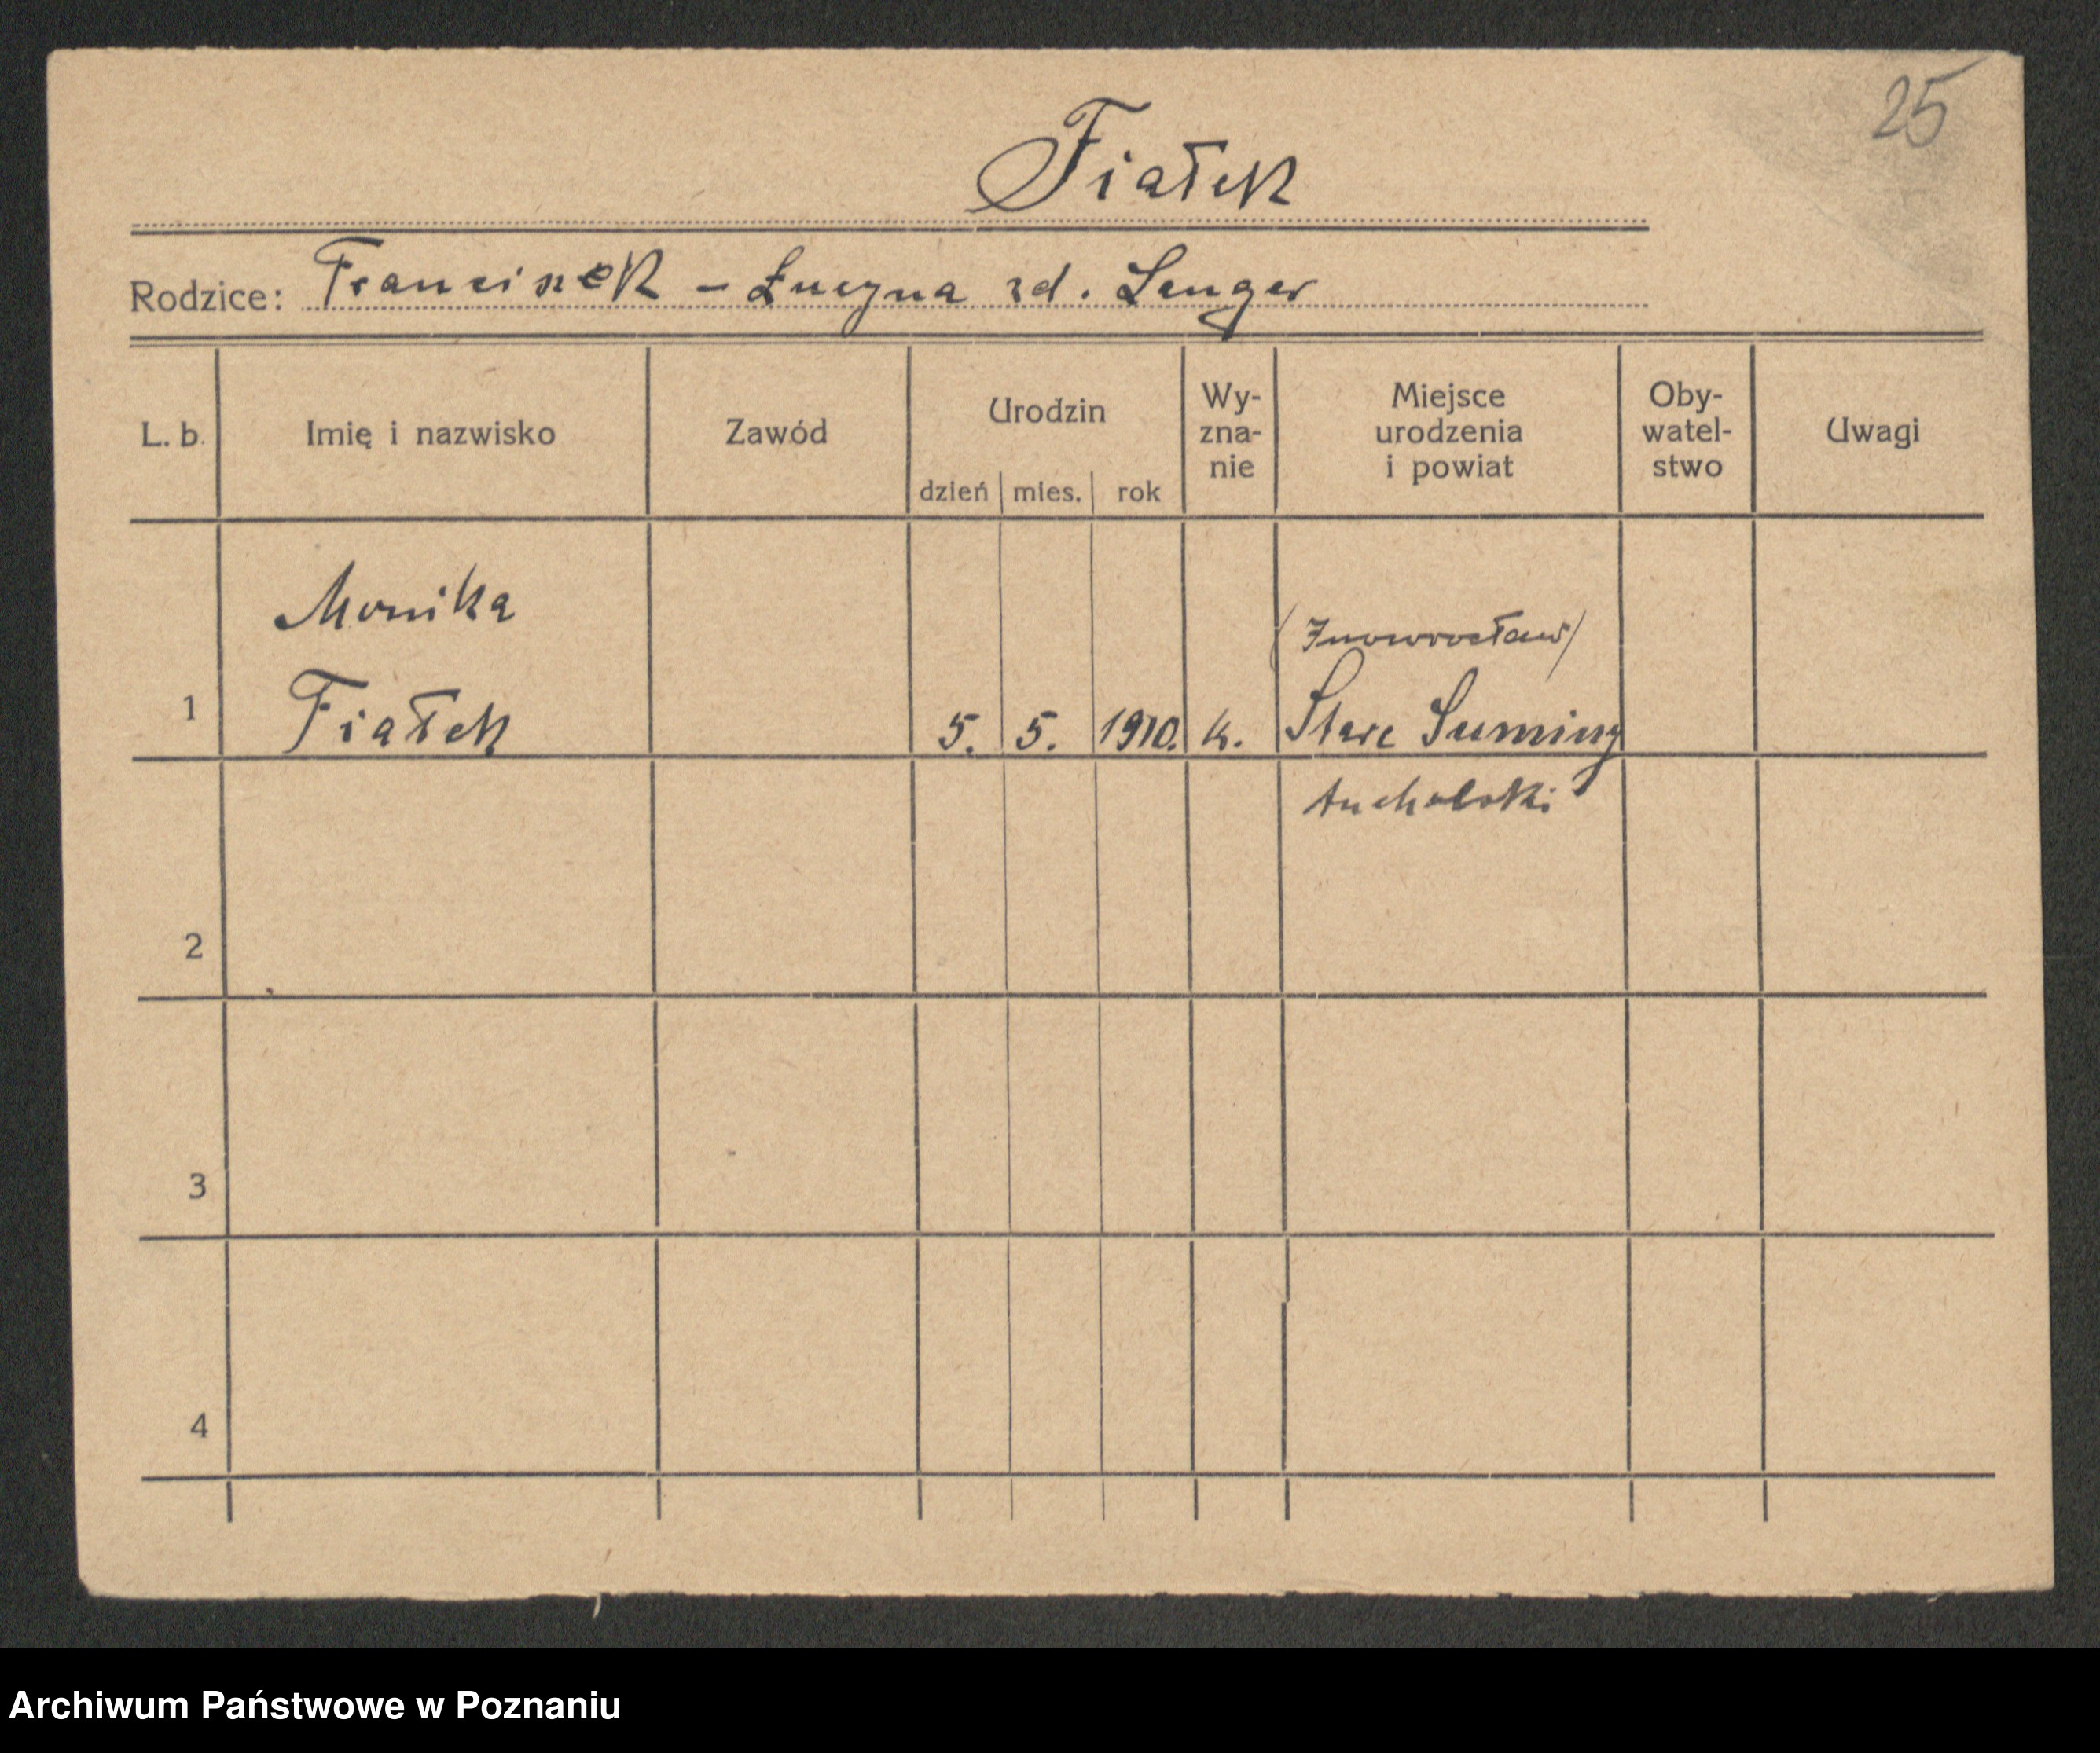 25
Fiałek
Rodzice: Franciszek – Łucyna zd. Lenger
L. b.
Imię i nazwisko
Zawód
Urodzin
dzień mies. rok
Wy-
zna-
nie
Miejsce
urodzenia
i powiat
Oby-
watel-
stwo
Uwagi
Monika
(Inowrocław)
1 Fiałek 5. 5. 1910. k. Stare Suminy
tucholski
2
3
4
Archiwum Państwowe w Poznaniu